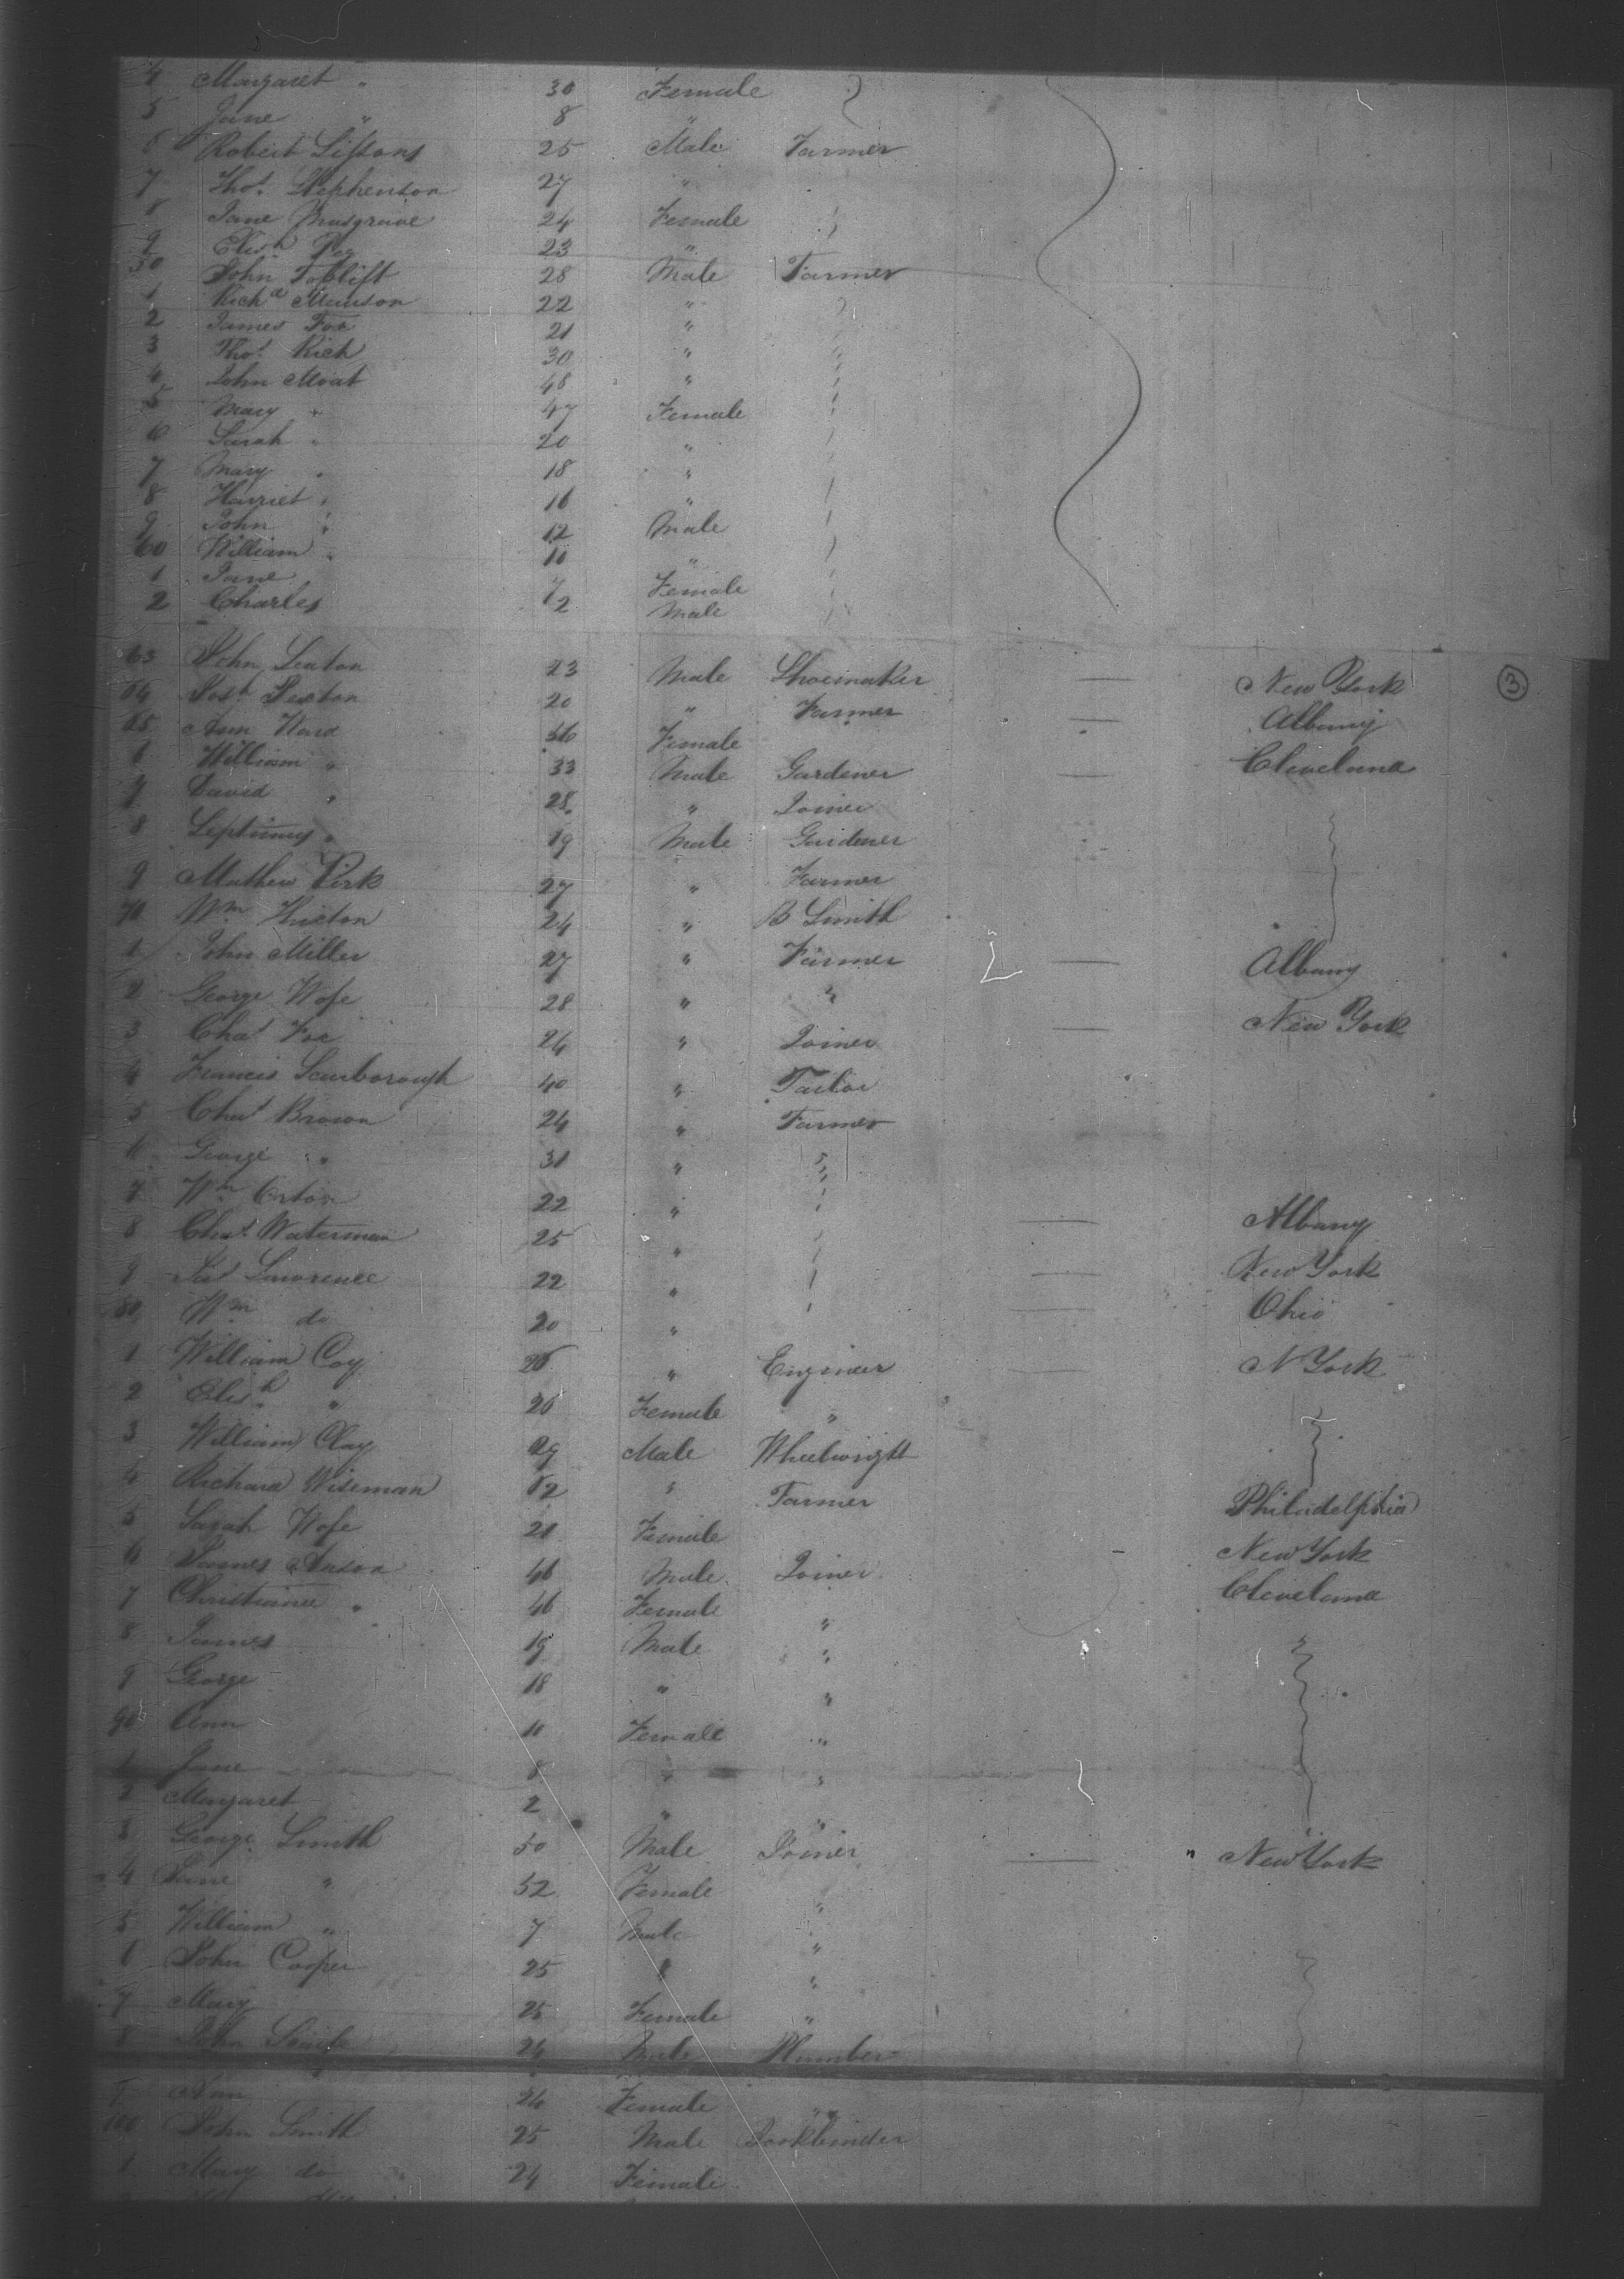 4 Margaret " 30 Female
5 Jane " 8 "
6 Robert 25 Male Farmer
7 Thos. Stephenson 27 "
8 Jane Musgrave 24 Female
9 Elizh 23 "
50 John Toplift 28 Male Farmer
1 Richd Manson 22 "
2 James Fox 21 "
3 Thos. Rich 30 "
4 John Moat 48 "
5 Mary " 47 Female
6 Sarah " 20 "
7 Mary " 18 "
8 Harriet " 16 "
9 John " 12 Male
60 William " 10 "
1 Jane 7 Female
2 Charles 2 Male
63 John Seaton 23 Male Shoemaker — New York
64 Josh Sexton 20 " Farmer — Albany
65 Ann Ward Female
6 William " 33 Male Gardener — Cleveland
7 David " 28 " Joiner
8 Septimus " 19 Male Gardener
9 Mathew Pirk 27 " Farmer
70 Wm 24 " B Smith
1 John Miller 27 " Farmer — Albany
2 George Wofe 28 " "
3 Chas Fox 24 " Joiner — New York
4 Francis Scarborough 40 " Tailor
5 Chas Brown 24 " Farmer
6 George " 31 " "
7 Wm Orton 22 " "
8 Chas. Waterman 25 " — Albany
9 Lawrence 22 " — New York
80 Wm do 20 " — Ohio
1 William Coy 26 " Engineer — N York
2 Elizh " 26 Female "
3 William Clay 29 Male Wheelwright
4 Richard Wiseman Farmer Philadelphia
5 Sarah Wofe 21 Female New York
6 James Anson 46 Male Joiner Cleveland
7 Christiana " 46 Female "
8 James 19 Male "
9 George 18 " "
90 Ann 10 Female "
1 Jane 8 " "
2 Margaret 2 " "
3 George Smith 50 Male Joiner — New York
4 Jane " 52 Female "
5 William " 7 Male "
6 John Cooper 25 " "
7 Mary 25 Female "
8 John 24 Male Plumber
9 Ann 24 Female "
100 John Smith 25 Male Bookbinder
1 Mary do 24 Female
3